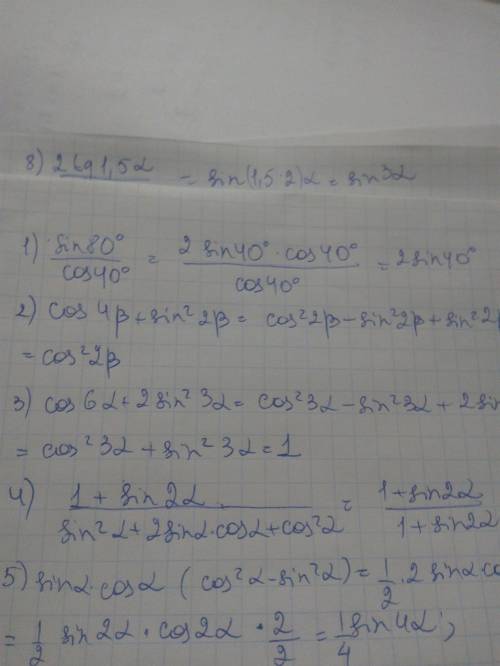 8) = sin(1,5·2)α = sin3α
1) sin80°/cos40° = 2 sin40°·cos40°/cos40° = 2sin40°
2) cos 4β + sin² 2β = cos²2β − sin²2β + sin²2β
= cos²2β
3) cos 6α + 2sin² 3α = cos²3α − sin²3α + 2sin
= cos² 3α + sin² 3α = 1
4) 1 + sin2α/sin²α + 2sinα·cosα + cos²α = 1 + sin2α/1 + sin2α
5) sinα·cosα (cos²α − sin²α) = 1/2 · 2 sinα co
= 1/2 sin2α · cos2α · 2/2 = 1/4 sin 4α;